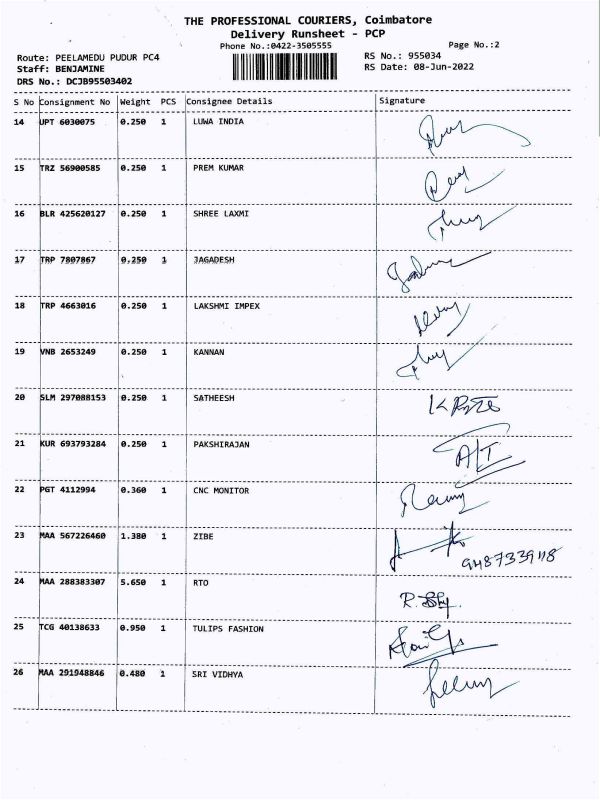 THE PROFESSIONAL COURIERS, Coimbatore
Delivery Runsheet - PCP
Phone No.:0422-3505555
Page No.:2
Route: PEELAMEDU PUDUR PC4
RS No.: 955034
Staff: BENJAMINE
RS Date: 08-Jun-2022
DRS No.: DCJB95503402
S No Consignment No Weight PCS Consignee Details Signature
14 UPT 6030075 0.250 1 LUWA INDIA
15 TRZ 56900585 0.250 1 PREM KUMAR
16 BLR 425620127 0.250 1 SHREE LAXMI
17 TRP 7807867 0.250 1 JAGADESH
18 TRP 4663016 0.250 1 LAKSHMI IMPEX
19 VNB 2653249 0.250 1 KANNAN
20 SLM 297088153 0.250 1 SATHEESH
21 KUR 693793284 0.250 1 PAKSHIRAJAN A/T
22 PGT 4112994 0.360 1 CNC MONITOR
23 MAA 567226460 1.380 1 ZIBE
9487339118
24 MAA 288383307 5.650 1 RTO
25 TCG 40138633 0.950 1 TULIPS FASHION
26 MAA 291948846 0.480 1 SRI VIDHYA